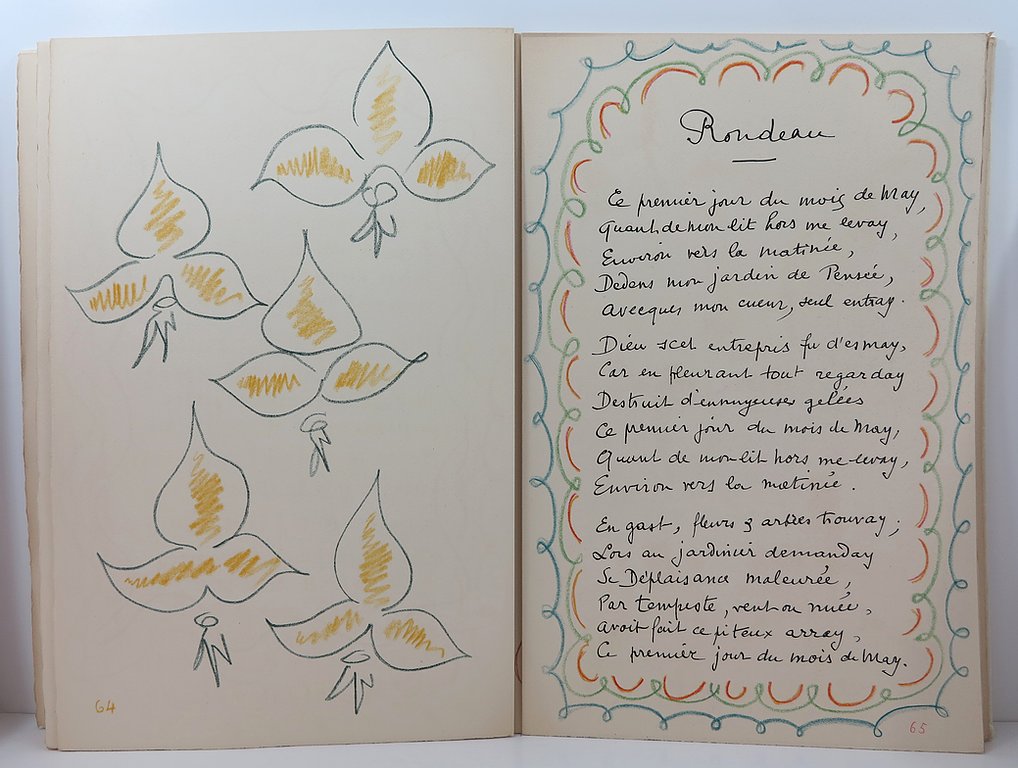 64
Rondeau
Ce premier jour du mois de May,
Quant de mon lit hors me levay,
Environ vers la matinée,
Dedens mon jardin de Pensée,
Avecques mon cueur, seul entray.
Dieu scet entrepris fu d'esmay,
Car en pleurant tout regarday
Destruit d'ennuyeuses gelées
Ce premier jour du mois de May,
Quant de mon lit hors me levay,
Environ vers la matinée.
En gast, fleurs & arbres trouvay;
Lors au jardinier demanday
Se Déplaisance maleurée,
Par tempeste, vent ou nuée,
Avoit fait ce piteux array,
Ce premier jour du mois de May.
65